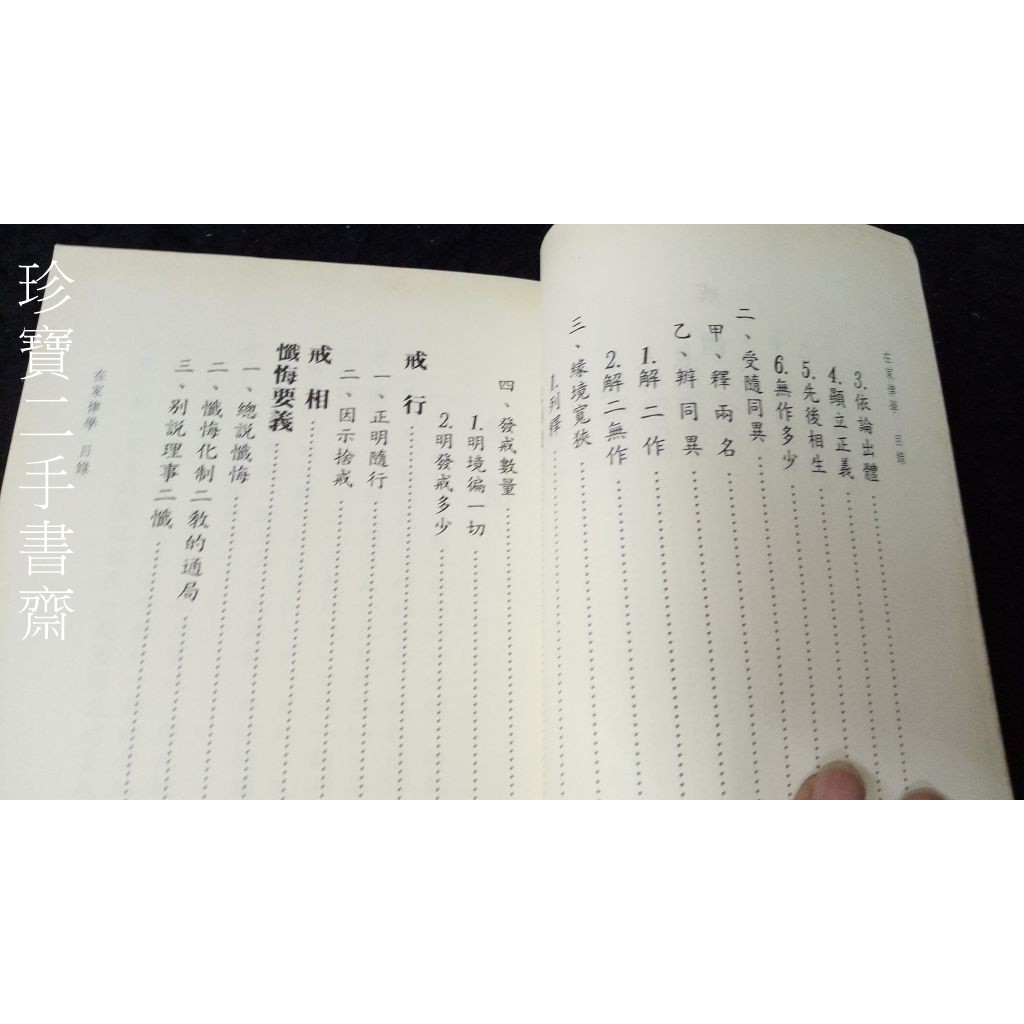 珍寶二手書齋
在家律學 目錄
3.依論出體
4.顯立正義
5.先後相生
6.無作多少
二、受隨同異
甲、釋兩名
乙、辨同異
1.解二作
2.解二無作
三、緣境寬狹
四、發戒數量
1.明境徧一切
2.明發戒多少
戒行
一、正明隨行
二、因示捨戒
戒相
懺悔要義
一、總說懺悔
二、懺悔化制二教的通局
三、別說理事二懺
在家律學 目錄